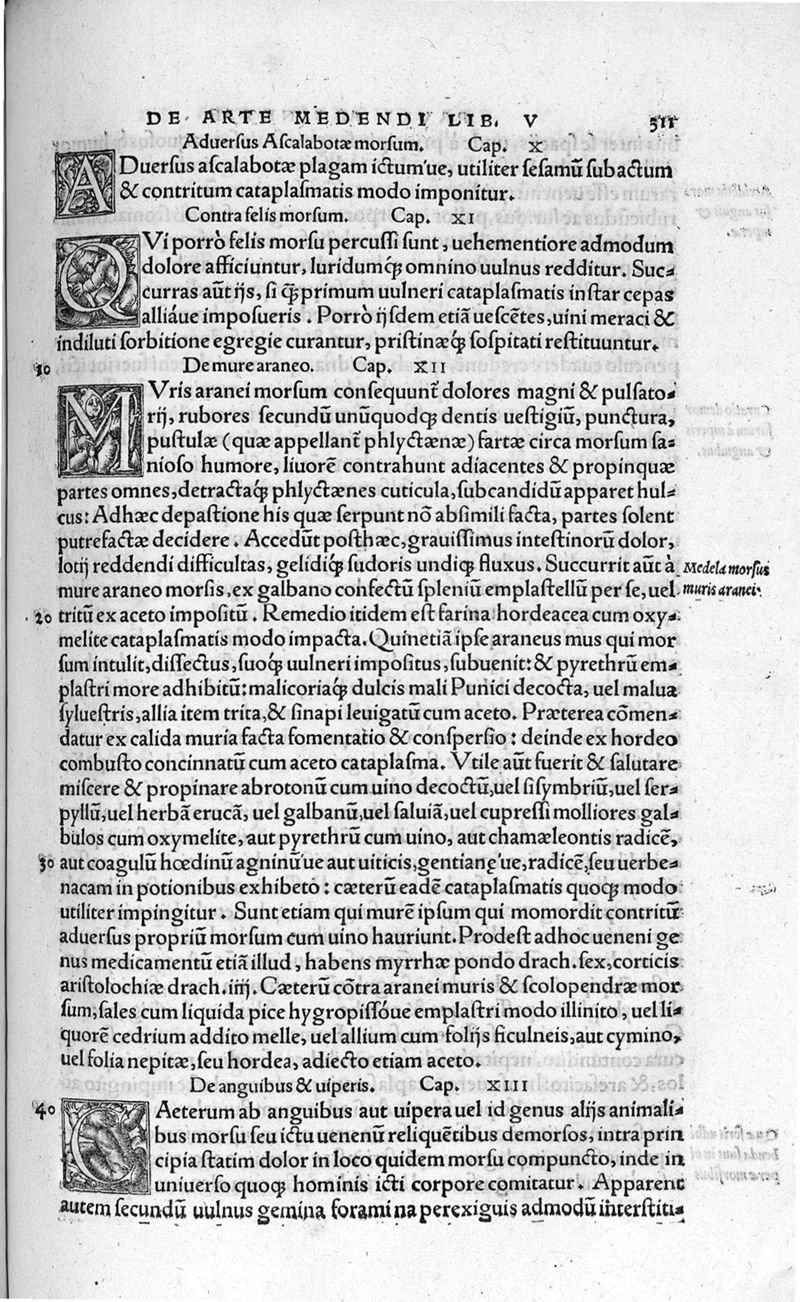 DE ARTE MEDENDI LIB. V 311
Aduersus Ascalabotæ morsum. Cap. X
ADuersus ascalabotæ plagam ictum'ue, utiliter sesamū subactum
& contritum cataplasmatis modo imponitur.
Contra felis morsum. Cap. XI
QVi porrò felis morsu percussi sunt, uehementiore admodum
dolore afficiuntur, luridumq́ꝫ omnino uulnus redditur. Suc-
curras aūt ijs, si q̄ꝫ primum uulneri cataplasmatis instar cepas
alliáue imposueris. Porrò ijsdem etiā uescētes, uini meraci &
indiluti sorbitione egregie curantur, pristinæq́ꝫ sospitati restituuntur.
10 De mure araneo. Cap. XII
MVris aranei morsum consequunt̄ dolores magni & pulsato-
rij, rubores secundū unūquodqꝫ dentis uestigiū, punctura,
pustulæ (quæ appellant̄ phlyctænæ) fartæ circa morsum sa-
nioso humore, liuorē contrahunt adiacentes & propinquæ
partes omnes, detractaq́ꝫ phlyctænes cuticula, subcandidū apparet hul-
cus: Adhæc depastione his quæ serpunt nō absimili facta, partes solent
putrefactæ decidere. Accedūt posthæc, grauissimus intestinorū dolor,
lotij reddendi difficultas, gelidiq́ꝫ sudoris undiqꝫ fluxus. Succurrit aūt à
Medela morsus
mure araneo morsis, ex galbano confectū spleniū emplastellū per se, uel
muris aranei.
20 tritū ex aceto impositū. Remedio itidem est farina hordeacea cum oxy-
melite cataplasmatis modo impacta. Quinetiā ipse araneus mus qui mor
sum intulit, dissectus, suoq́ꝫ uulneri impositus, subuenit: & pyrethrū em-
plastri more adhibitū: malicoriaq́ꝫ dulcis mali Punici decocta, uel malua
syluestris, allia item trita, & sinapi leuigatū cum aceto. Præterea cōmen-
datur ex calida muria facta fomentatio & conspersio: deinde ex hordeo
combusto concinnatū cum aceto cataplasma. Vtile aūt fuerit & salutare
miscere & propinare abrotonū cum uino decoctū, uel sisymbriū, uel ser-
pyllū, uel herbā erucā, uel galbanū, uel saluiā, uel cupressi molliores gal-
bulos cum oxymelite, aut pyrethrū cum uino, aut chamæleontis radicē,
30 aut coagulū hœdinū agninū'ue aut uiticis, gentianę'ue, radicē, seu uerbe-
nacam in potionibus exhibeto: cæterū eadē cataplasmatis quoqꝫ modo
utiliter impingitur. Sunt etiam qui murē ipsum qui momordit contritū
aduersus propriū morsum cum uino hauriunt. Prodest adhoc ueneni ge
nus medicamentū etiā illud, habens myrrhæ pondo drach. sex, corticis
aristolochiæ drach. iiij. Cæterū cōtra aranei muris & scolopendræ mor
sum, sales cum liquida pice hygropissóue emplastri modo illinito, uel li-
quorē cedrium addito melle, uel allium cum folijs ficulneis, aut cymino,
uel folia nepitæ, seu hordea, adiecto etiam aceto.
De anguibus & uiperis. Cap. XIII
40 CAeterum ab anguibus aut uipera uel id genus alijs animali-
bus morsu seu ictu uenenū reliquētibus demorsos, intra prin
cipia statim dolor in loco quidem morsu compuncto, inde in
uniuerso quoqꝫ hominis icti corpore comitatur. Apparent
autem secundū uulnus gemina foramina perexiguis admodū interstiti-